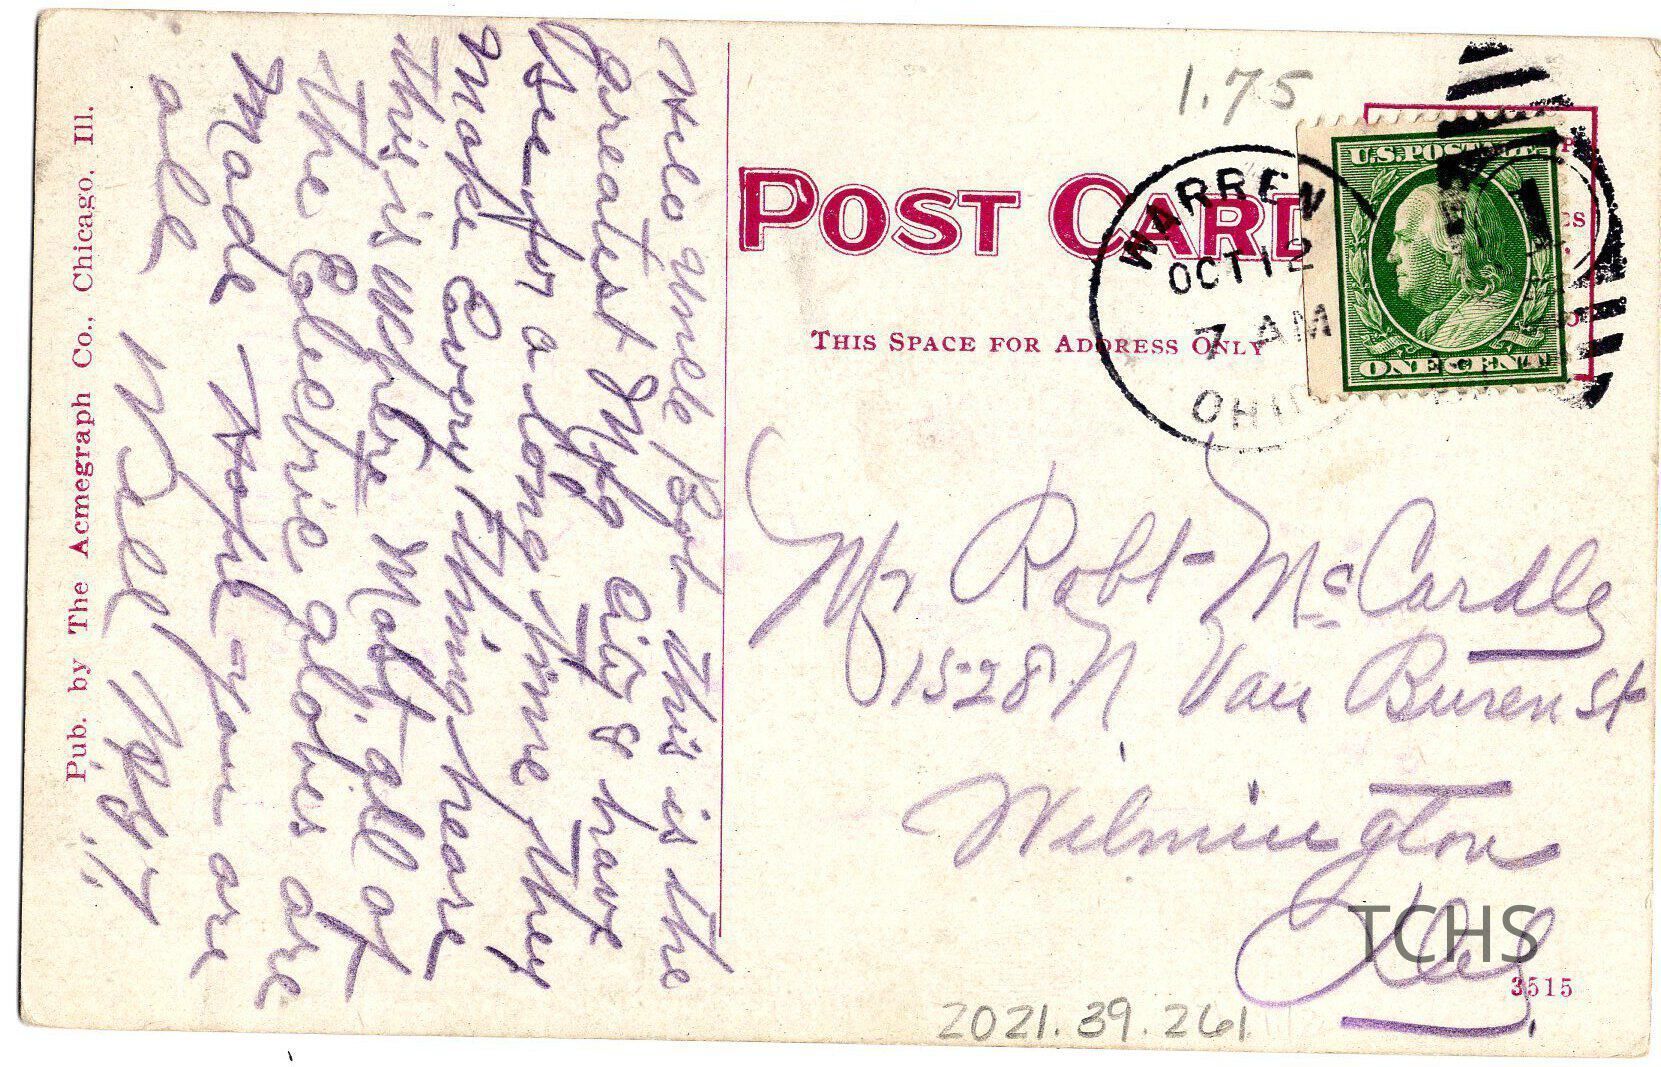 Helo Uncle Bob this is the
Greatest Mfg City I have
See for a long time, they
Make Every thing heare
this is Where Most all of
the Electric globes are
Made Hope you are
all Well
Pub. by The Acmegraph Co., Chicago, Ill.
1.75
POST CARD
THIS SPACE FOR ADDRESS ONLY
WARREN
OCT 12
7 AM
OHIO
U.S. POSTAGE
ONE CENT
1
Mr Robt McCardle
1528 N Van Buren St
Wilmington
Del.
TCHS
3515
2021.39.261